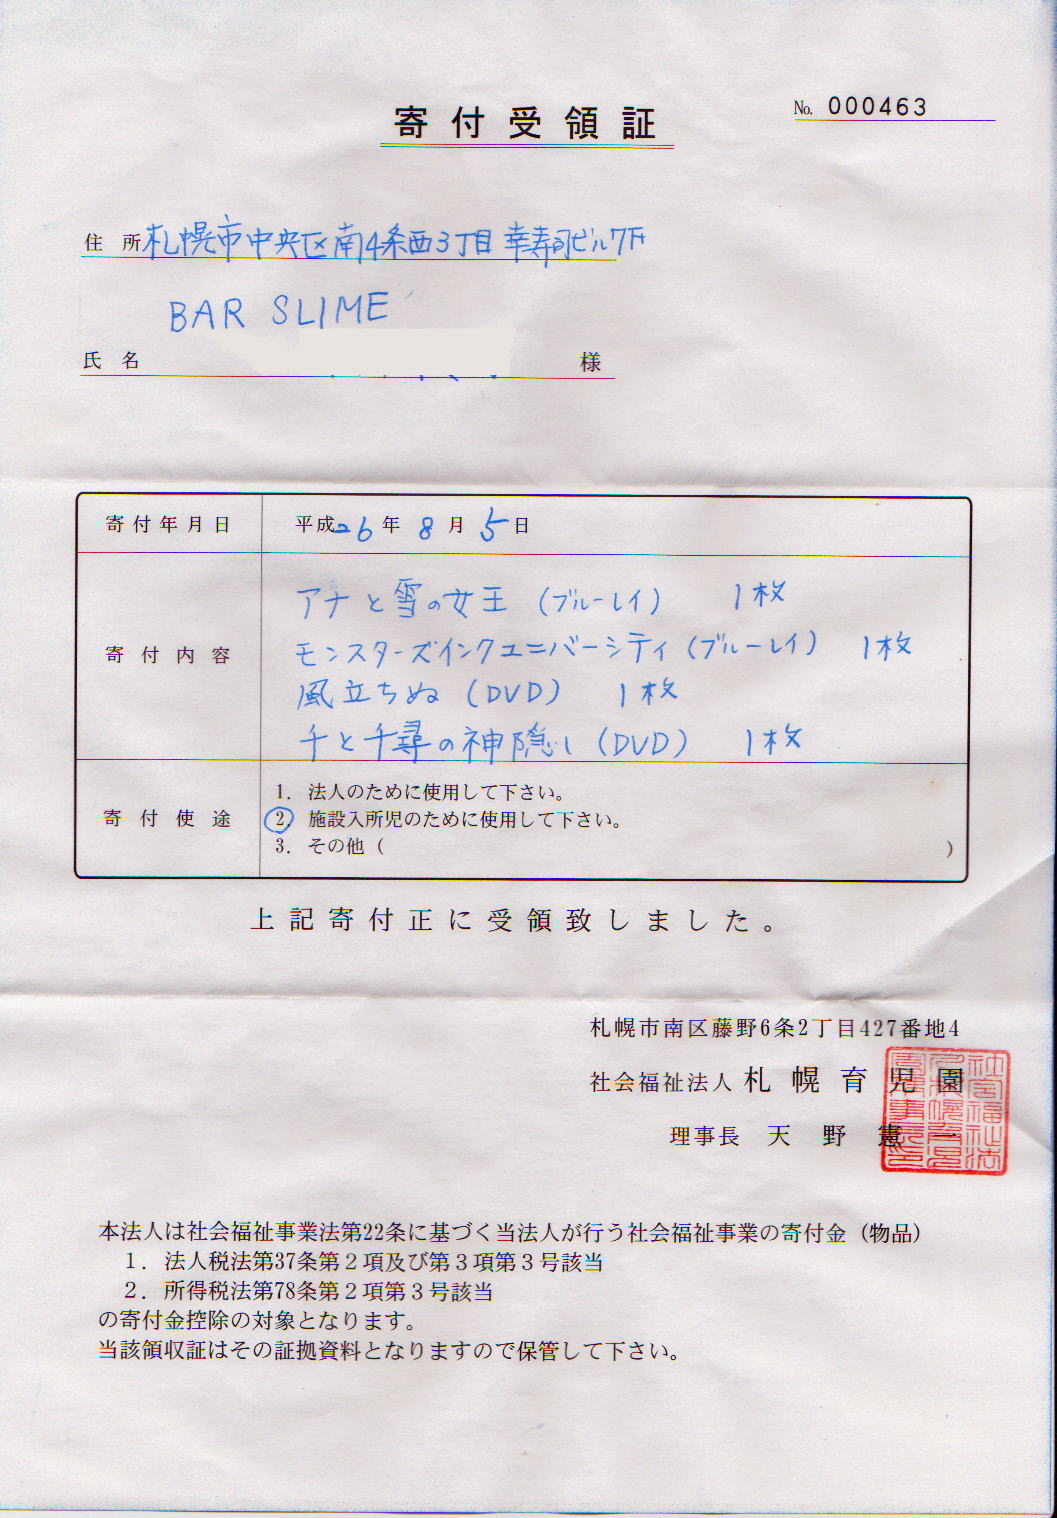 寄付受領証
No. 000463
住所 札幌市中央区南4条西3丁目 幸寿司ビル7F
BAR SLIME
氏名 様
寄付年月日 平成26年8月5日
寄付内容 アナと雪の女王（ブルーレイ） 1枚
モンスターズインクユニバーシティ（ブルーレイ） 1枚
風立ちぬ（DVD） 1枚
千と千尋の神隠し（DVD） 1枚
寄付使途 1. 法人のために使用して下さい。
2. 施設入所児のために使用して下さい。
3. その他（ ）
上記寄付正に受領致しました。
札幌市南区藤野6条2丁目427番地4
社会福祉法人 札幌育児園
理事長 天野憲一
本法人は社会福祉事業法第22条に基づく当法人が行う社会福祉事業の寄付金（物品）
１．法人税法第37条第２項及び第３項第３号該当
２．所得税法第78条第２項第３号該当
の寄付金控除の対象となります。
当該領収証はその証拠資料となりますので保管して下さい。